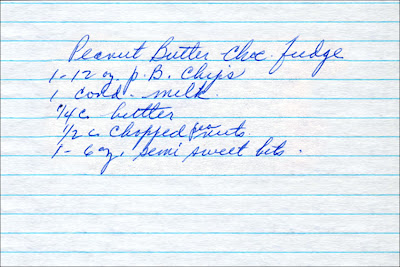 Peanut Butter Choc. fudge
1-12 oz p.B. Chips
1 cond. milk.
1/4 c. butter
1/2 c Chopped peanuts.
1- 6 oz. semi sweet bits.